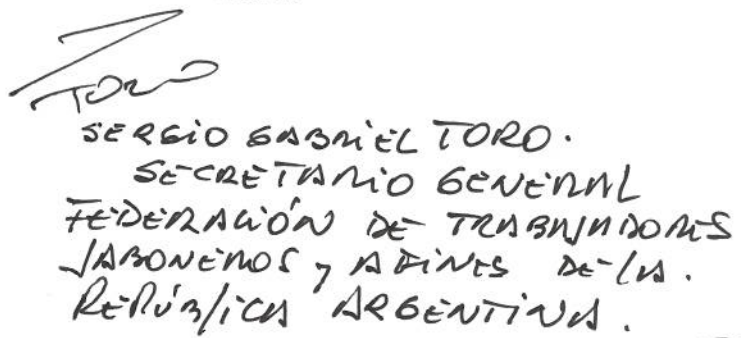 TORO
SERGIO GABRIEL TORO.
SECRETARIO GENERAL
FEDERACIÓN DE TRABAJADORES
JABONEROS y AFINES DE LA.
REPÚBLICA ARGENTINA.